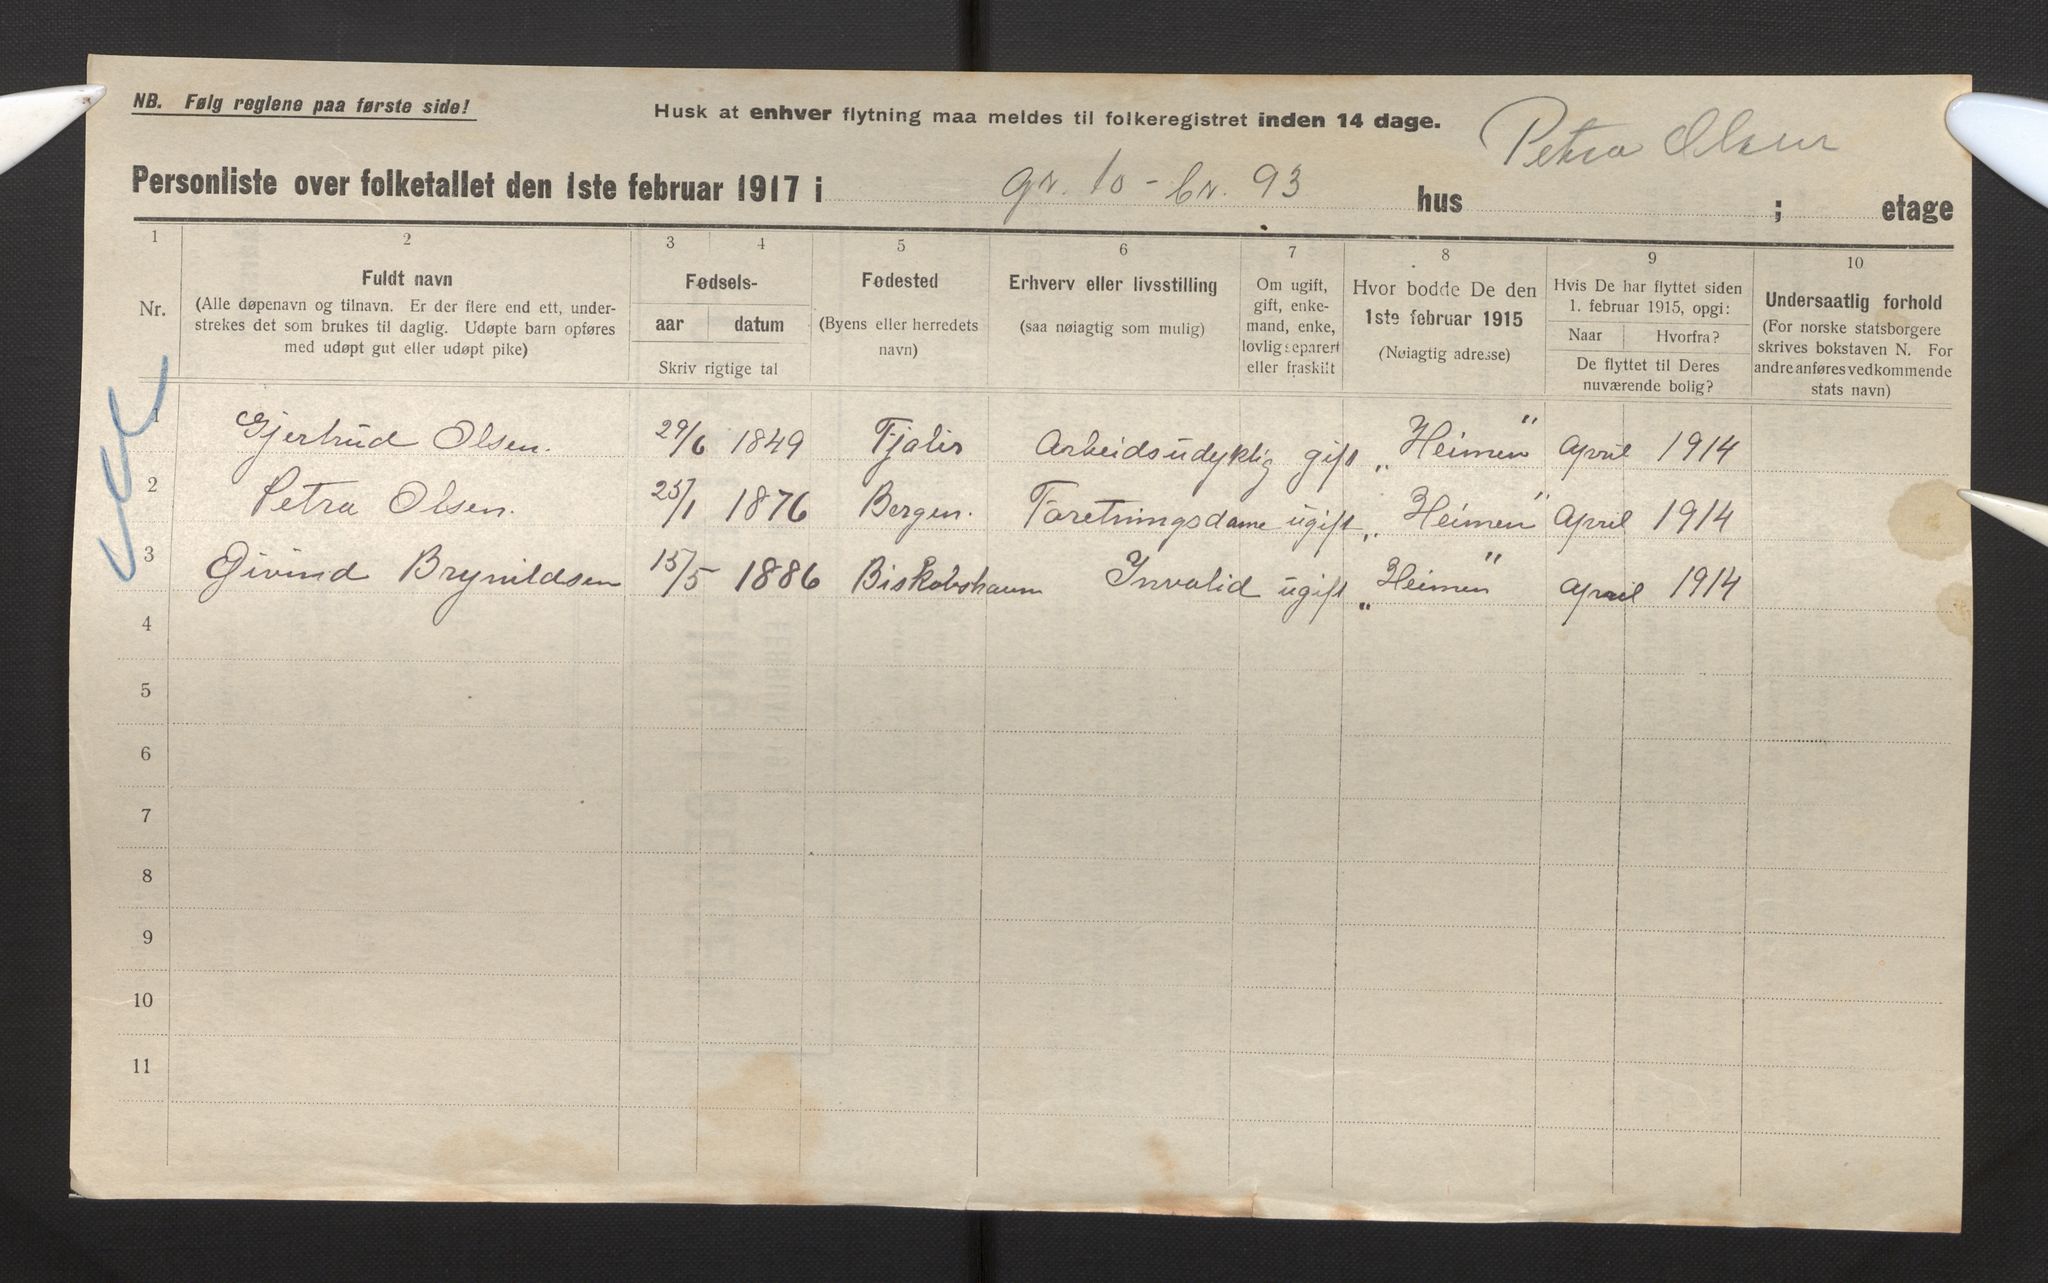 NB. Følg reglene paa første side!
Husk at enhver flytning maa meldes til folkeregistret inden 14 dage.
Petra Olsen
Personliste over folketallet den 1ste februar 1917 i gr. 10 - br. 93 hus ; etage
1 2 3 4 5 6 7 8 9 10
Nr.
Fuldt navn
(Alle døpenavn og tilnavn. Er der flere end ett, under-
strekes det som brukes til daglig. Udøpte barn opføres
med udøpt gut eller udøpt pike)
Fødsels-
aar datum
Skriv rigtige tal
Fødested
(Byens eller herredets
navn)
Erhverv eller livsstilling
(saa nøiagtig som mulig)
Om ugift,
gift, enke-
mand, enke,
lovlig separert
eller fraskilt
Hvor bodde De den
1ste februar 1915
(Nøiagtig adresse)
Hvis De har flyttet siden
1. februar 1915, opgi:
Naar Hvorfra?
De flyttet til Deres
nuværende bolig?
Undersaatlig forhold
(For norske statsborgere
skrives bokstaven N. For
andre anføres vedkommende
stats navn)
1 Gjertrud Olsen. 29/6 1849 Fjaler Arbeidsudyktig gift „Heimen" April 1914
2 Petra Olsen. 25/1 1876 Bergen. Foretningsdame ugift „Heimen" April 1914
3 Øivind Brynildsen 15/5 1886 Biskobshavn Invalid ugift „Heimen" April 1914
4
5
6
7
8
9
10
11